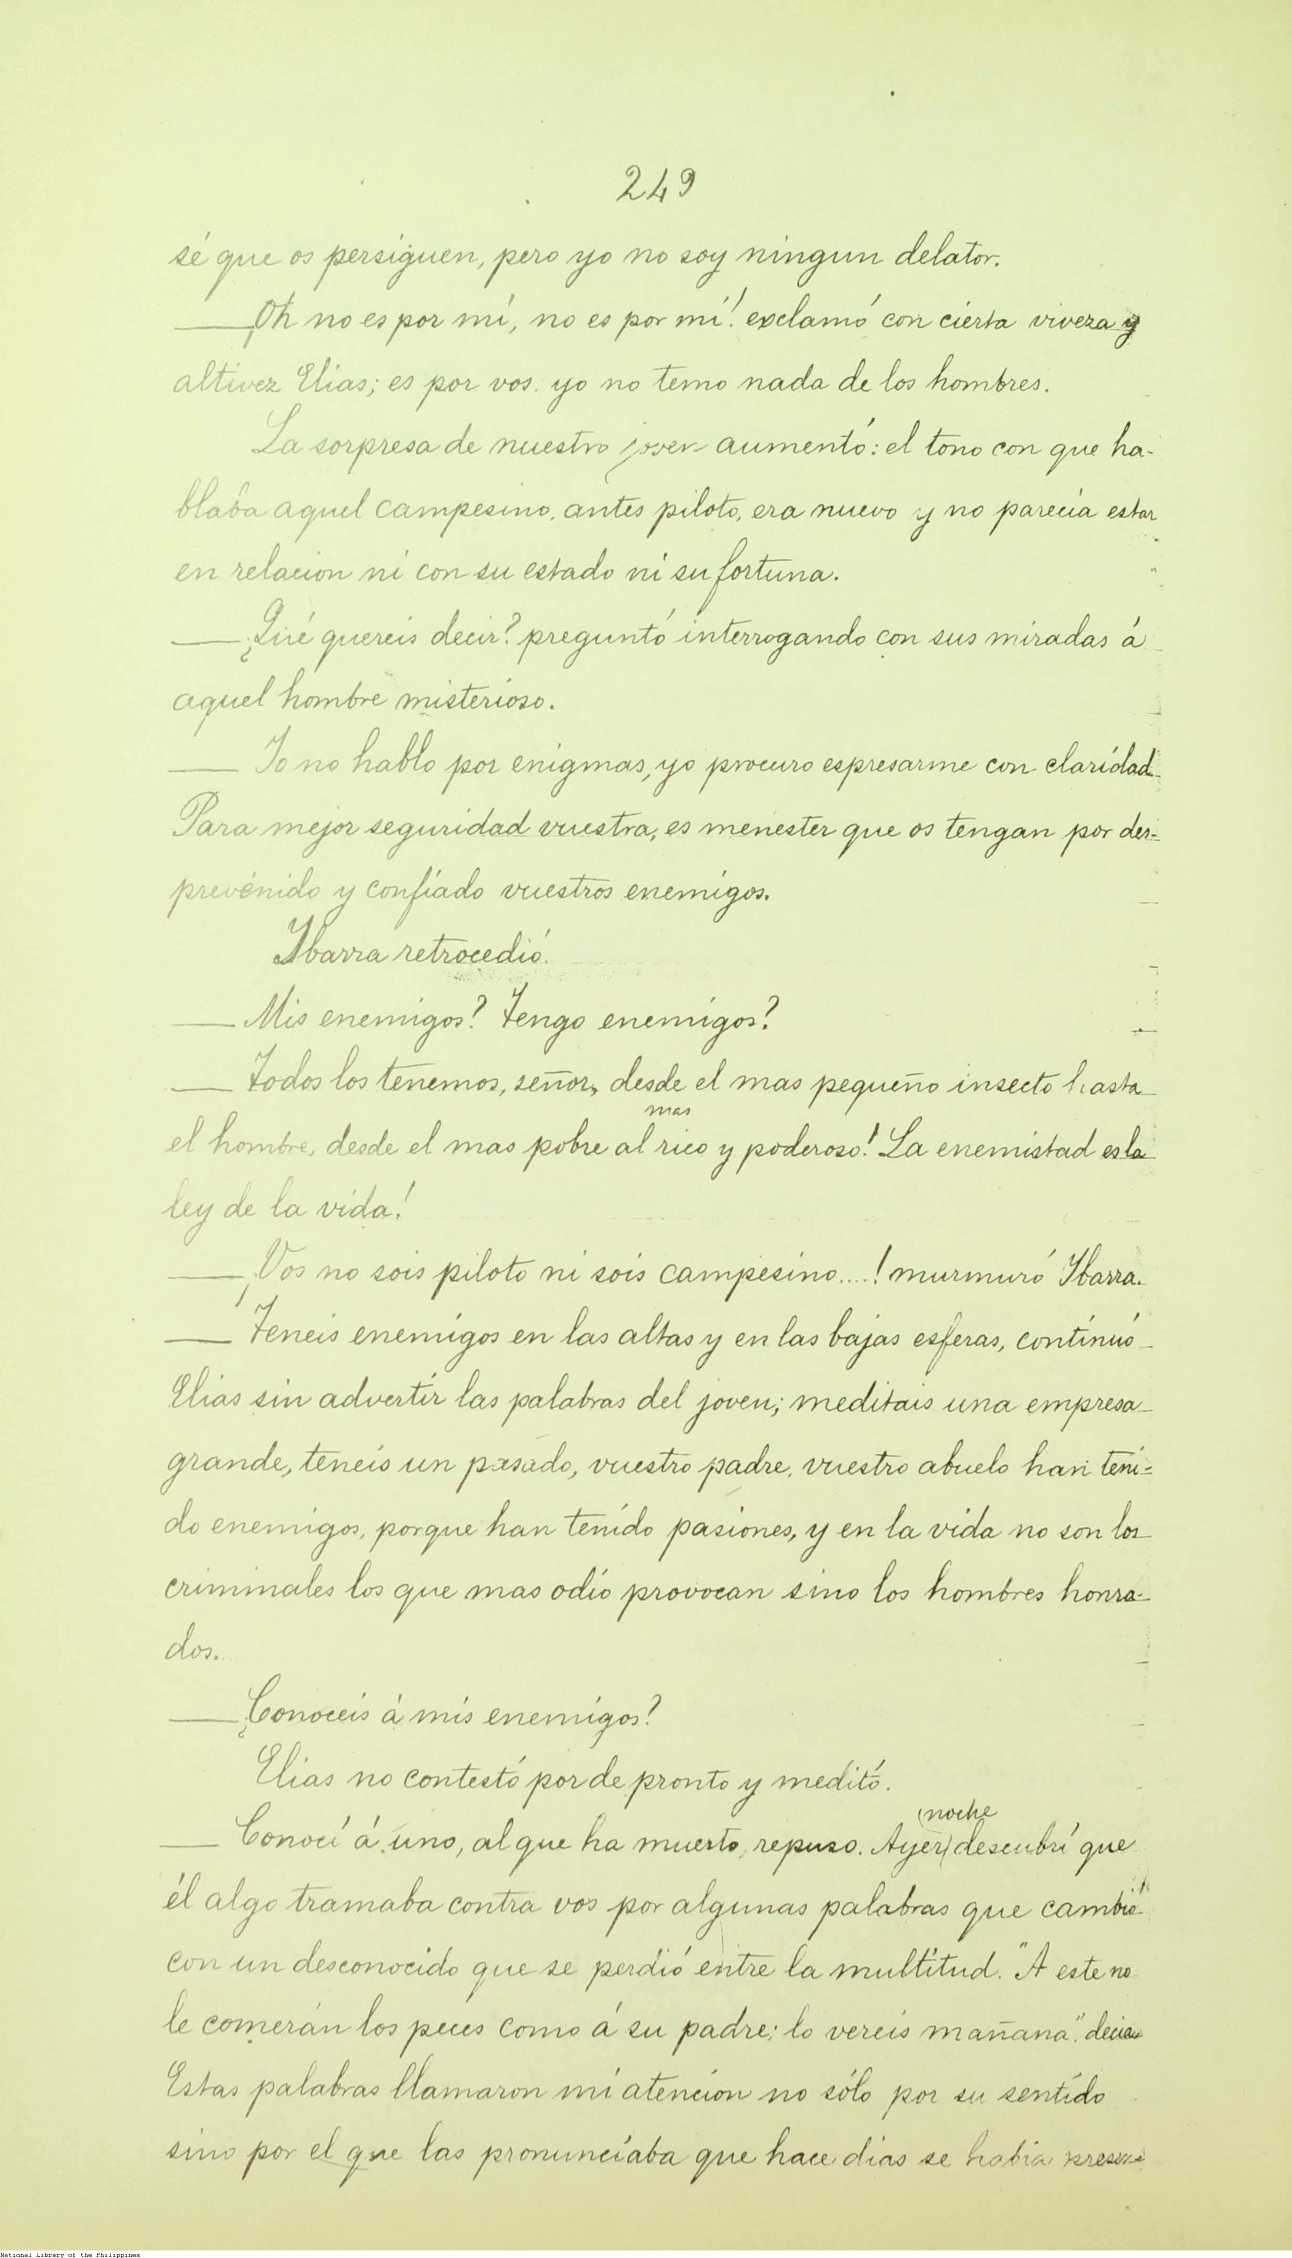 249
sé que os persiguen, pero yo no soy ningun delator.
— ¡Oh no es por mí, no es por mí! exclamó con cierta viveza y
altivez Elias; es por vos. yo no temo nada de los hombres.
La sorpresa de nuestro joven aumentó: el tono con que ha-
blaba aquel campesino, antes piloto, era nuevo y no parecia estar
en relacion ni con su estado ni su fortuna.
— ¿Qué quereis decir? preguntó interrogando con sus miradas á
aquel hombre misterioso.
— Yo no hablo por enigmas, yo procuro espresarme con claridad.
Para mejor seguridad vuestra, es menester que os tengan por des=
prevenido y confiado vuestros enemigos.
Ybarra retrocedió.
— Mis enemigos? Tengo enemigos?
— Todos los tenemos, señor, desde el mas pequeño insecto hasta
el hombre, desde el mas pobre al mas rico y poderoso! La enemistad es la
ley de la vida!
— ¡Vos no sois piloto ni sois campesino....! murmuró Ybarra.
— Teneis enemigos en las altas y en las bajas esferas, continuó
Elias sin advertir las palabras del joven; meditais una empresa
grande, teneis un pasado, vuestro padre, vuestro abuelo han teni=
do enemigos, porque han tenido pasiones, y en la vida no son los
criminales los que mas odio provocan sino los hombres honra-
dos.
— ¿Conoceis á mis enemigos?
Elias no contestó por de pronto y meditó.
— Conocí á uno, al que ha muerto, repuso. Ayer noche descubrí que
él algo tramaba contra vos por algunas palabras que cambió
con un desconocido que se perdió entre la multitud. "A este no
le comerán los peces como á su padre; lo vereis mañana", decia
Estas palabras llamaron mi atencion no sólo por su sentido
sino por el que las pronunciaba que hace dias se habia presen=
National Library of the Philippines